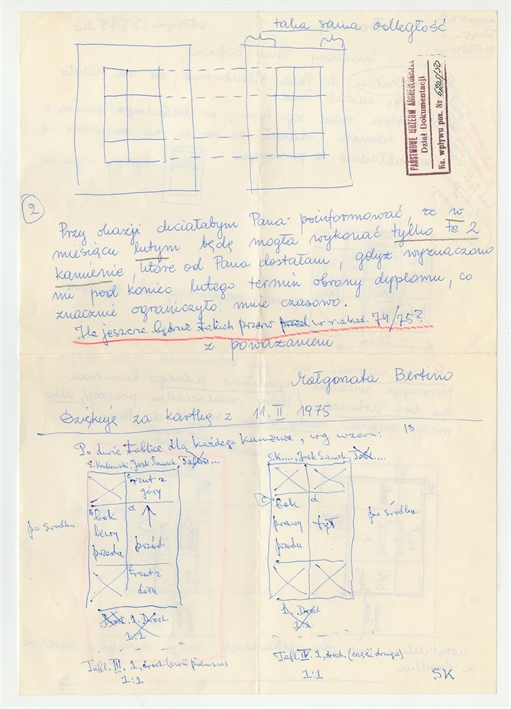 taka sama odległość
PAŃSTWOWE MUZEUM ARCHEOLOGICZNE
Dział Dokumentacji
Ks. wpływu poz. Nr
2
Przy okazji chciałabym Pana poinformować, że w
miesiącu lutym będę mogła wykonać tylko te 2
kamienie, które od Pana dostałam, gdyż wyznaczono
mi pod koniec lutego termin obrony dyplomu, co
znacznie ograniczyło mnie czasowo.
Ile jeszcze będzie takich przerw w r. akad. 74/75?
z poważaniem
Małgorzata Bertino
Dziękuję za kartkę z 11.II 1975
Po dwie tablice dla każdego kamienia, wg wzoru:
13
po środku
Frzut z
góry
bok
lewy
przodu
d
przód
Frzut z
dołu
1:1
Tabl. III. 1, droch. (część pierwsza)
1:1
bok
prawy
przodu
d
tył
po środku.
1. Droch
1:1
Tabl. IV. 1, droch. (część druga)
1:1
SK